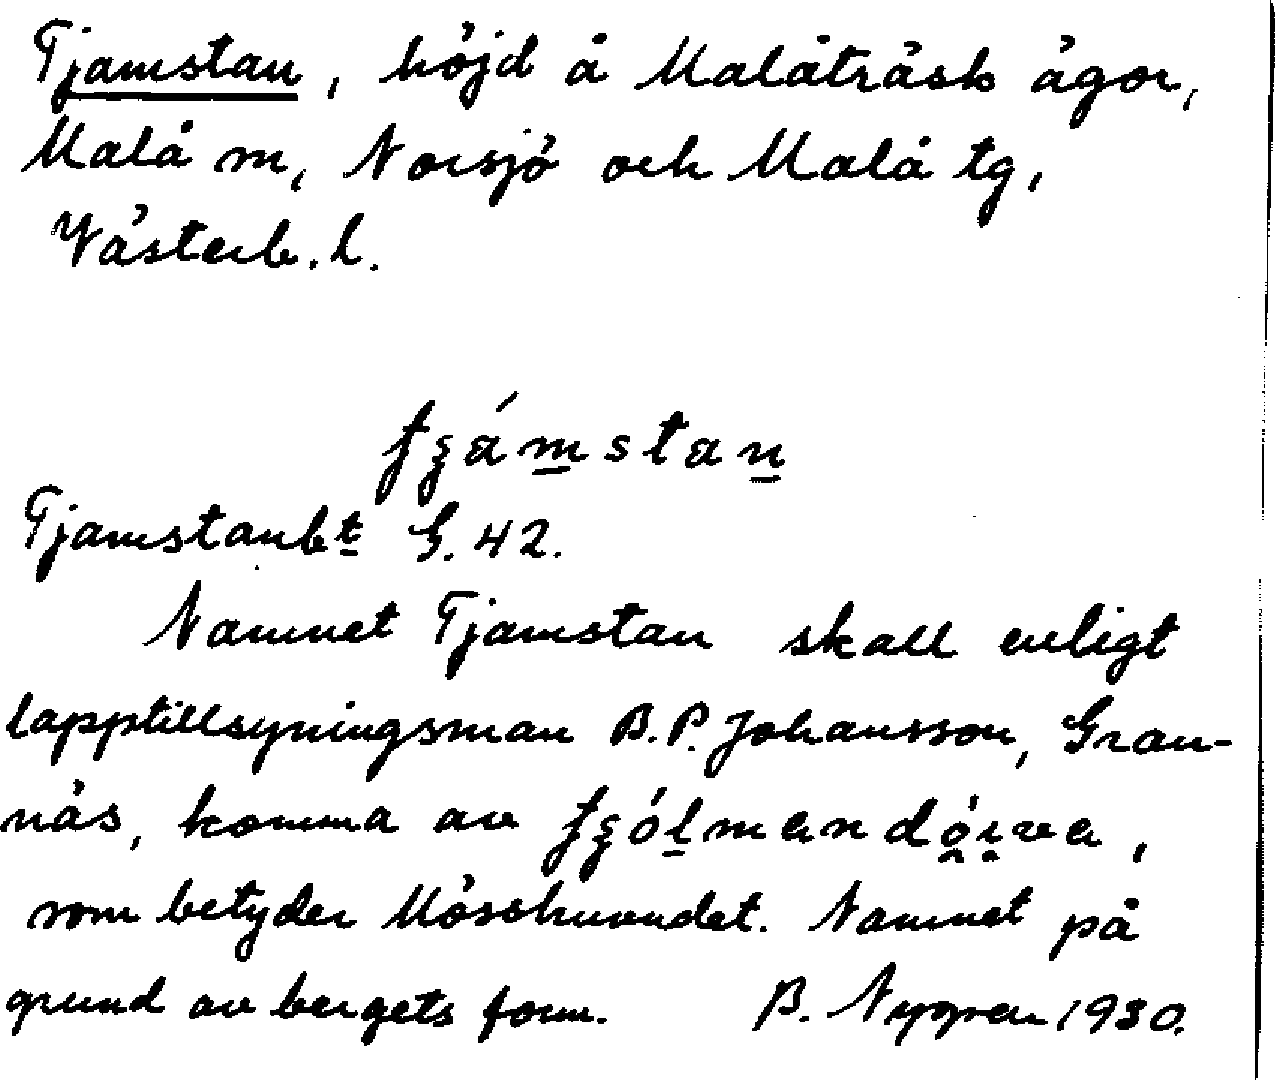 Tjamstan, höjd å Malåträsk ägor,
Malå sn, Norsjö och Malå tg,
Västerb. l.
Tjamstanbt G. 42.
Namnet Tjamstan skall enligt
lapptillsyningsman B. P. Johansson, Gran-
näs, komma av
som betyder Mösshuvudet. Namnet på
grund av bergets form. B. Nygren 1930.